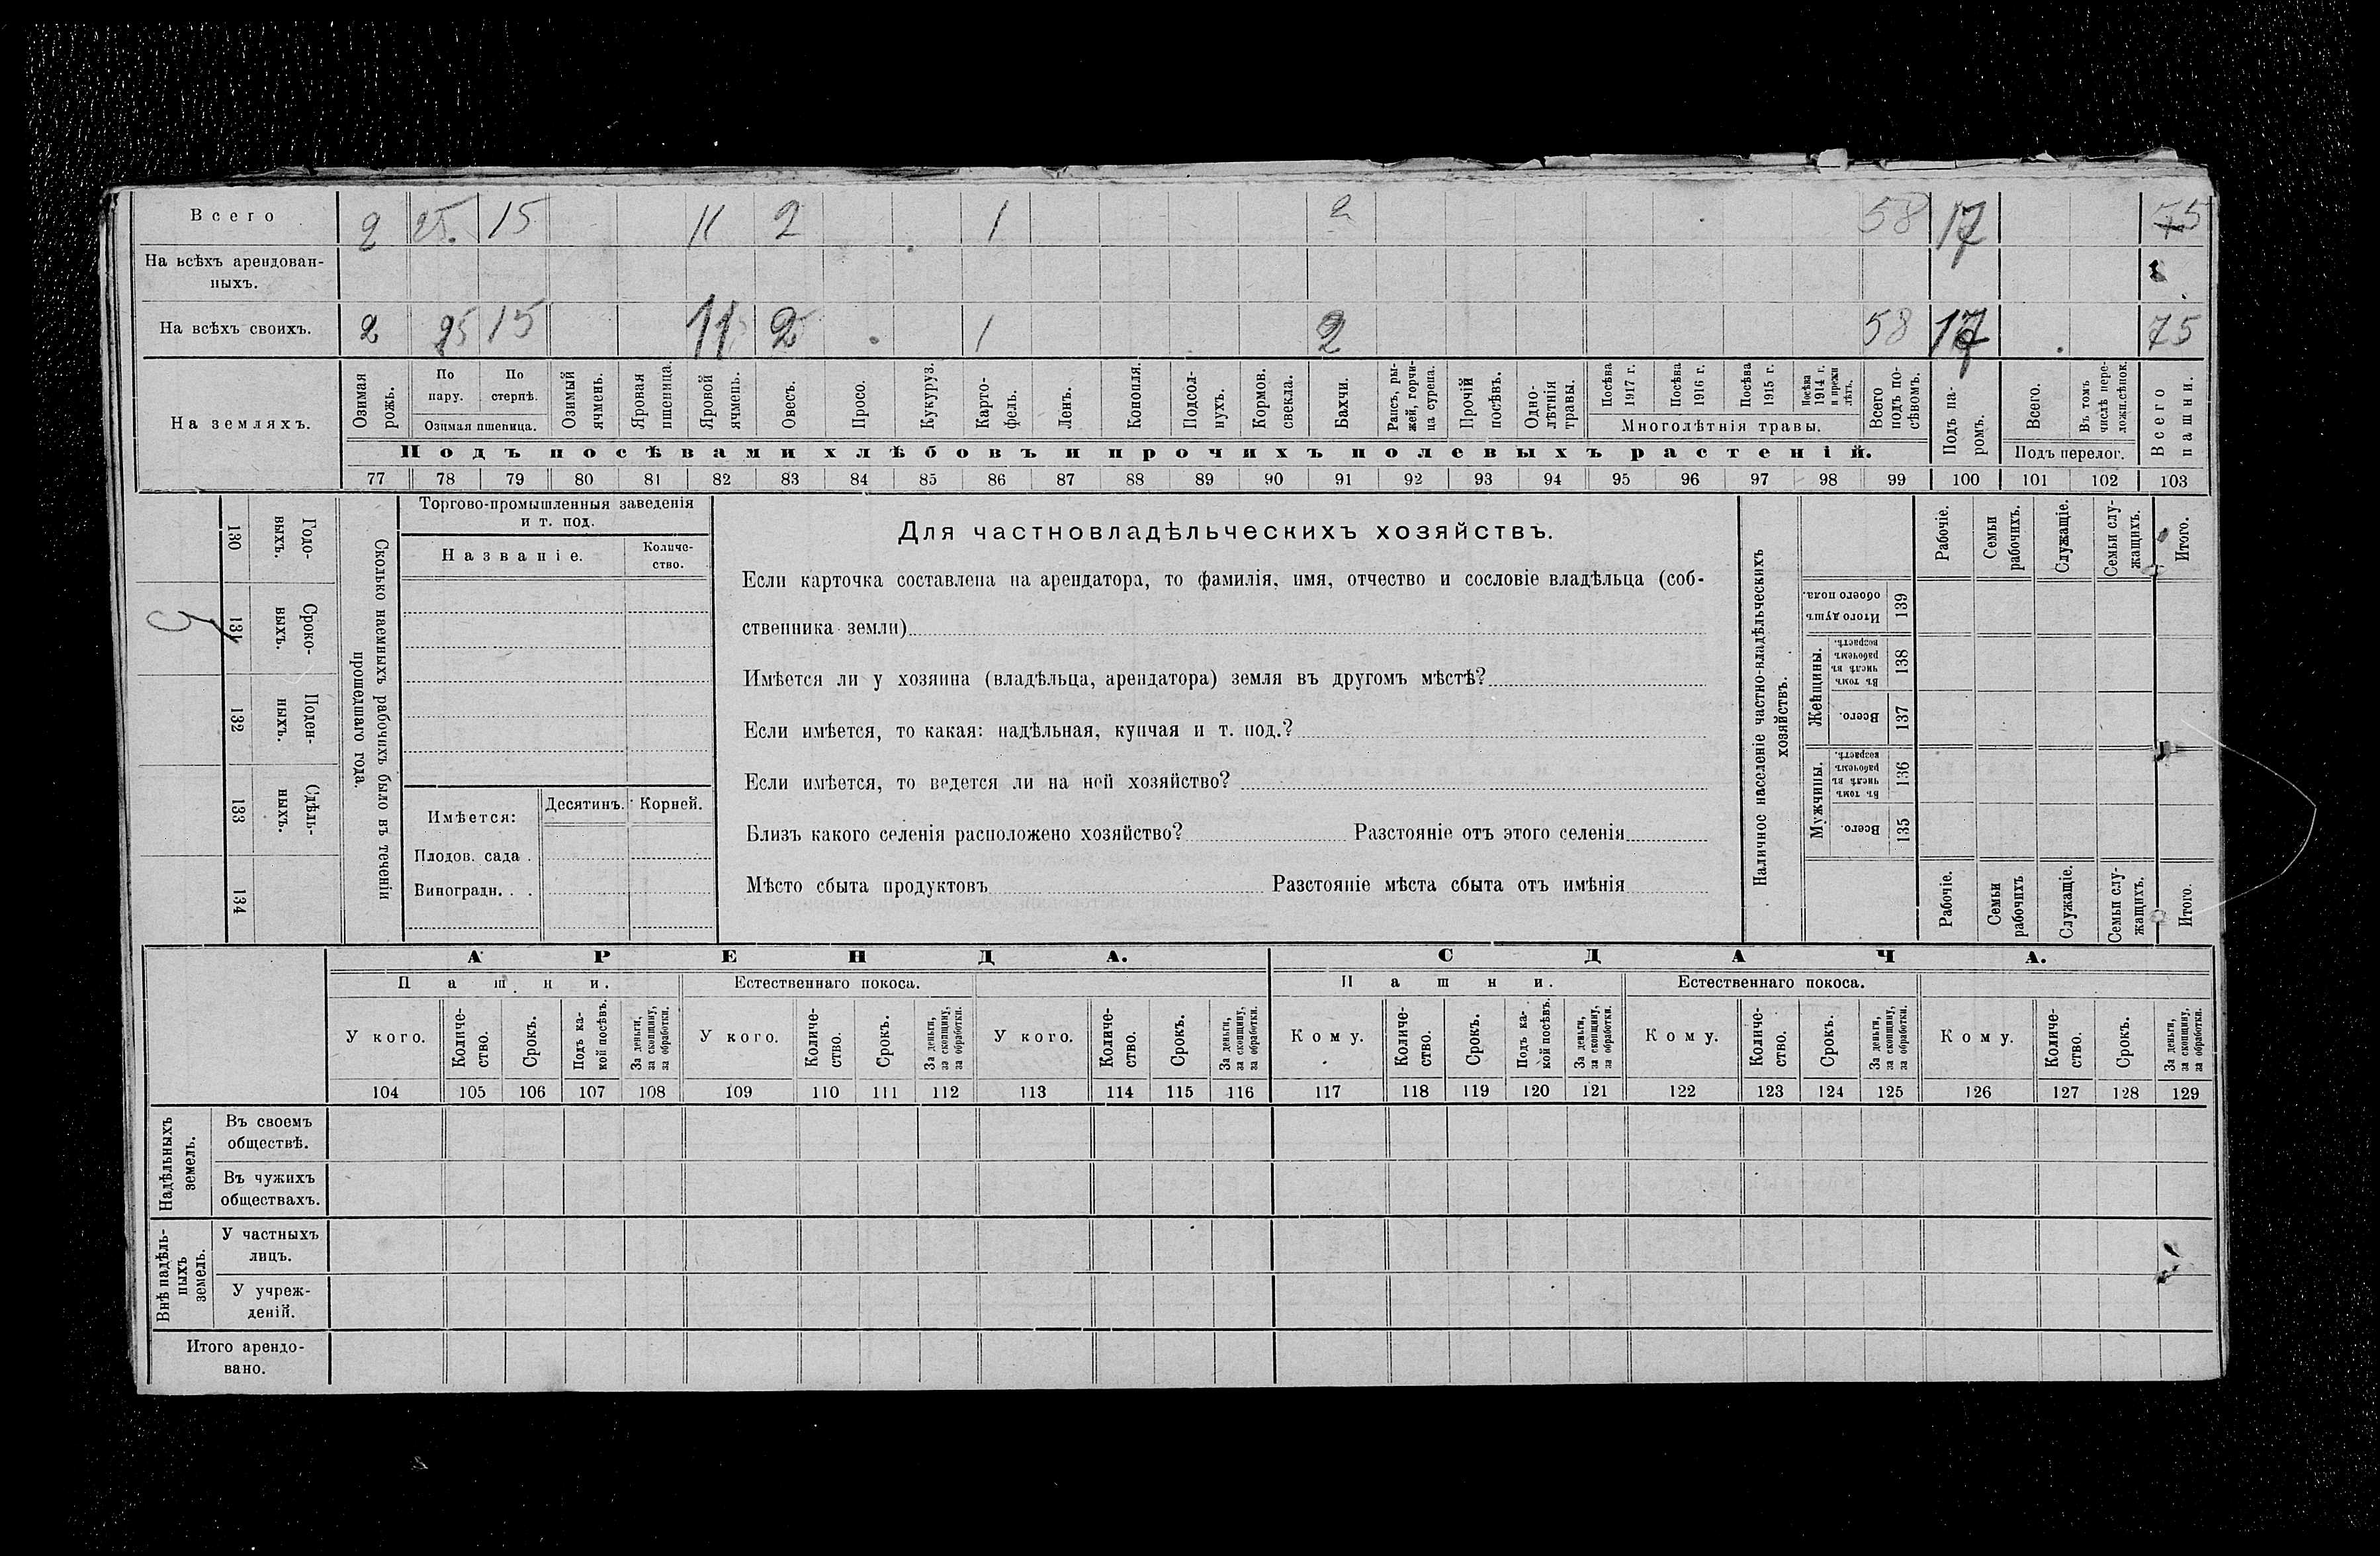 Всего 2 25. 15 11 2 1 2 58 17 75
На всѣхъ арендован-
ныхъ.
На всѣхъ своихъ. 2 25 15 11 2 1 2 58 17 75
На земляхъ.
Озимая рожь.
По пару.
По стернѣ.
Озимая пшеница.
Озимый ячмень.
Яровая пшеница.
Яровой ячмень.
Овесъ.
Просо.
Кукуруз.
Карто-
фель.
Ленъ.
Конопля.
Подсол-
нухъ.
Кормов. свекла.
Бахчи.
Рапсъ, ры-
жей, горчи-
ца сурепа.
Прочій посѣвъ.
Одно-
лѣтнія травы.
Посѣва 1917 г.
Посѣва 1916 г.
Посѣва 1915 г.
Посѣва 1914 г. и прежн лѣтъ.
Многолѣтнія травы.
Всего подъ по-
сѣвомъ.
Подъ посѣвами хлѣбовъ и прочихъ полевыхъ растеній.
Подъ па-
ромъ.
Всего.
Въ томъ числѣ пере-
ложн.сѣнок.
Подъ перелог.
Всего пашни.
77 78 79 80 81 82 83 84 85 86 87 88 89 90 91 92 93 94 95 96 97 98 99 100 101 102 103
Сколько наемныхъ рабочихъ было въ теченіи
прошедшаго года.
Годо-
выхъ.
130
Сроко-
выхъ.
131
Поден-
ныхъ.
132
Сдѣль-
ныхъ.
133
134
Торгово-промышленныя заведенія
и т. под.
Названіе.
Количе-
ство.
Имѣется:
Десятинъ.
Корней.
Плодов. сада .
Виноградн. . .
Для частновладѣльческихъ хозяйствъ.
Если карточка составлена на арендатора, то фамилія, имя, отчество и сословіе владѣльца (соб-
ственника земли)
Имѣется ли у хозяина (владѣльца, арендатора) земля въ другомъ мѣстѣ?
Если имѣется, то какая: надѣльная, купчая и т. под.?
Если имѣется, то ведется ли на ней хозяйство?
Близъ какого селенія расположено хозяйство? Разстояніе отъ этого селенія
Мѣсто сбыта продуктовъ Разстояніе мѣста сбыта отъ имѣнія
Наличное населеніе частно-владѣльческихъ
хозяйствъ.
Рабочіе.
Семьи рабочихъ.
Служащіе.
Семьи слу-
жащихъ.
Итого.
Итого душъ обоего пола.
139
Женщины.
Въ томъ числѣ въ рабочемъ возрастѣ.
138
Всего.
137
Мужчины.
Въ томъ числѣ въ рабочемъ возрастѣ.
136
Всего.
135
Рабочіе.
Семьи рабочихъ
Служащіе.
Семьи слу-
жащихъ.
Итого.
АРЕНДА. СДАЧА.
Пашни. Естественнаго покоса. Пашни. Естественнаго покоса.
У кого.
Количе-
ство.
Срокъ.
Подъ ка-
кой посѣвъ.
За деньги,
за скопщину,
за обработки.
У кого.
Количе-
ство.
Срокъ.
За деньги,
за скопщину,
за обработки.
У кого.
Количе-
ство.
Срокъ.
За деньги,
за скопщину,
за обработки.
Кому.
Количе-
ство.
Срокъ.
Подъ ка-
кой посѣвъ.
За деньги,
за скопщину,
за обработки.
Кому.
Количе-
ство.
Срокъ.
За деньги,
за скопщину,
за обработки.
Кому.
Количе-
ство.
Срокъ.
За деньги,
за скопщину,
за обработки.
104 105 106 107 108 109 110 111 112 113 114 115 116 117 118 119 120 121 122 123 124 125 126 127 128 129
Надѣльныхъ
земель.
Въ своемъ
обществѣ.
Въ чужихъ
обществахъ.
Внѣ надѣль-
ныхъ
земель.
У частныхъ
лицъ.
У учреж-
деній.
Итого арендо-
вано.